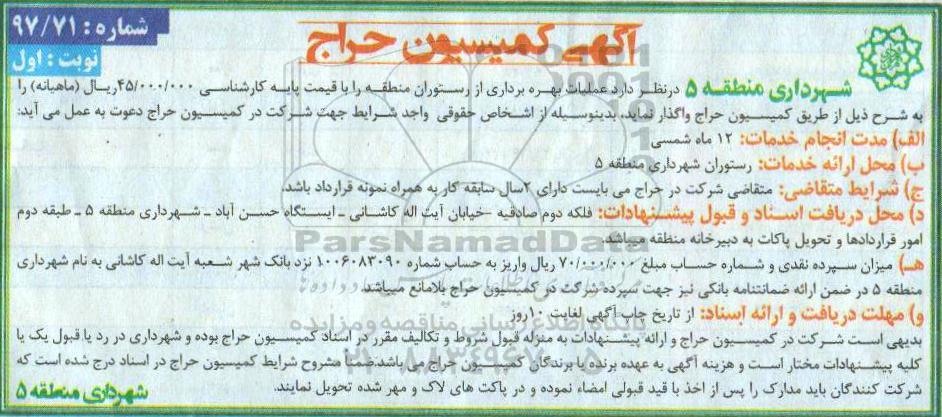 شماره: ۹۷/۷۱
نوبت: اول
آگهی کمیسیون حراج
شهرداری منطقه ۵ درنظر دارد عملیات بهره برداری از رستوران منطقه را با قیمت پایه کارشناسی ۴۵/۰۰۰/۰۰۰ریال (ماهیانه) را
به شرح ذیل از طریق کمیسیون حراج واگذار نماید، بدینوسیله از اشخاص حقوقی واجد شرایط جهت شرکت در کمیسیون حراج دعوت به عمل می آید:
الف) مدت انجام خدمات: ۱۲ ماه شمسی
ب) محل ارائه خدمات: رستوران شهرداری منطقه ۵
ج) شرایط متقاضی: متقاضی شرکت در حراج می بایست دارای ۲سال سابقه کار به همراه نمونه قرارداد باشد.
د) محل دریافت اسناد و قبول پیشنهادات: فلکه دوم صادقیه -خیابان آیت اله کاشانی ـ ایستگاه حسن آباد ـ شهرداری منطقه ۵ ـ طبقه دوم
امور قراردادها و تحویل پاکات به دبیرخانه منطقه میباشد.
ParsNamadData
هـ) میزان سپرده نقدی و شماره حساب مبلغ ۷۰/۰۰۰/۰۰۰ ریال واریز به حساب شماره ۱۰۰۶۰۸۳۰۹۰ نزد بانک شهر شعبه آیت اله کاشانی به نام شهرداری
منطقه ۵ در ضمن ارائه ضمانتنامه بانکی نیز جهت سپرده شرکت در کمیسیون حراج بلامانع میباشد
و) مهلت دریافت و ارائه اسناد: از تاریخ چاپ آگهی لغایت ۱۰روز
پایگاه اطلاع رسانی مناقصه و مزایده
بدیهی است شرکت در کمیسیون حراج و ارائه پیشنهادات به منزله قبول شروط و تکالیف مقرر در اسناد کمیسیون حراج بوده و شهرداری در رد یا قبول یک یا
کلیه پیشنهادات مختار است و هزینه آگهی به عهده برنده یا برندگان کمیسیون حراج می باشد.ضمنا مشروح شرایط کمیسیون حراج در اسناد درج شده است که
شرکت کنندگان باید مدارک را پس از اخذ با قید قبولی امضاء نموده و در پاکت های لاک و مهر شده تحویل نمایند.
شهرداری منطقه ۵